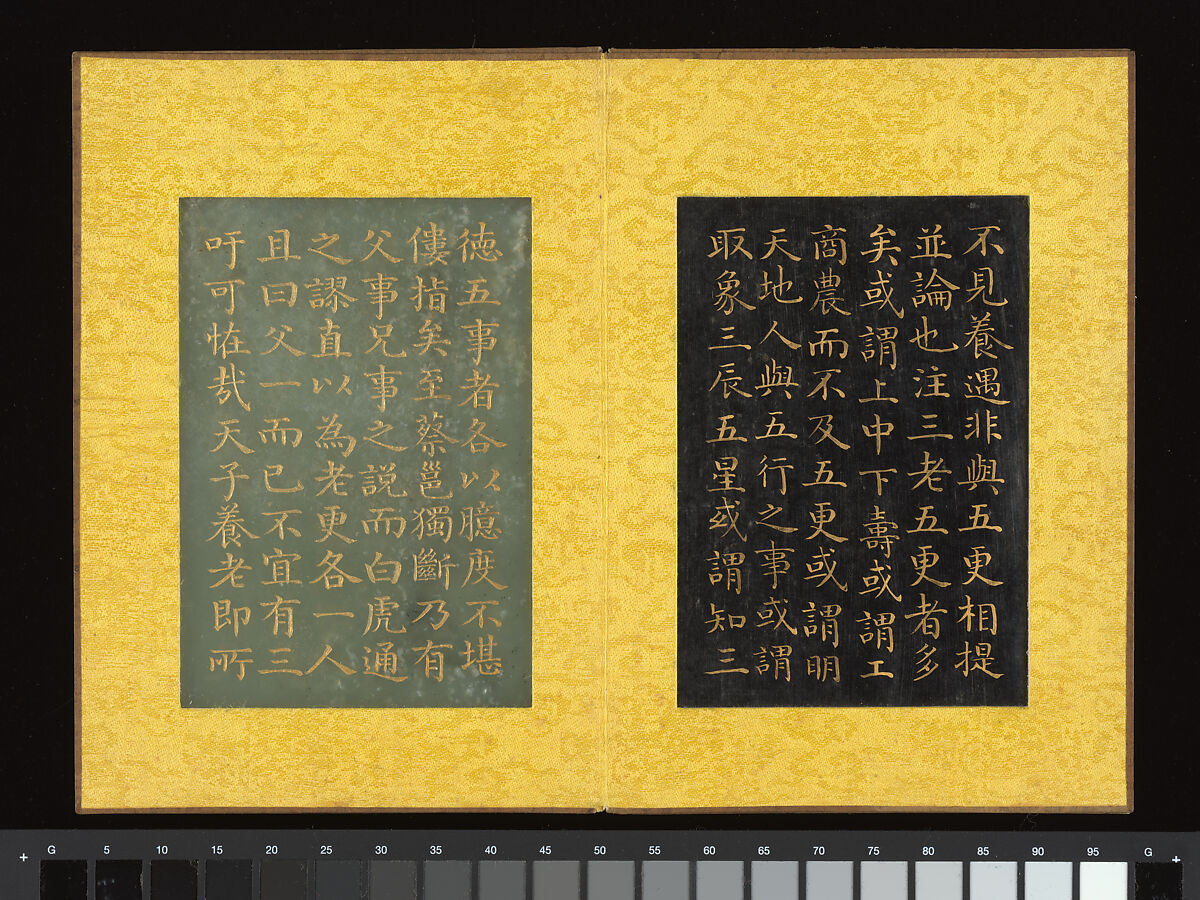 不見養遇非與五更相提
並論也注三老五更者多
矣或謂上中下壽或謂工
商農而不及五更或謂明
天地人與五行之事或謂
取象三辰五星或謂知三
德五事者各以臆度不堪
僂指矣至蔡邕獨斷乃有
父事兄事之説而白虎通
之謬直以為老更各一人
且曰父一而已不宜有三
吁可恠哉天子養老即所
G 5 10 15 20 25 30 35 40 45 50 55 60 65 70 75 80 85 90 95 G